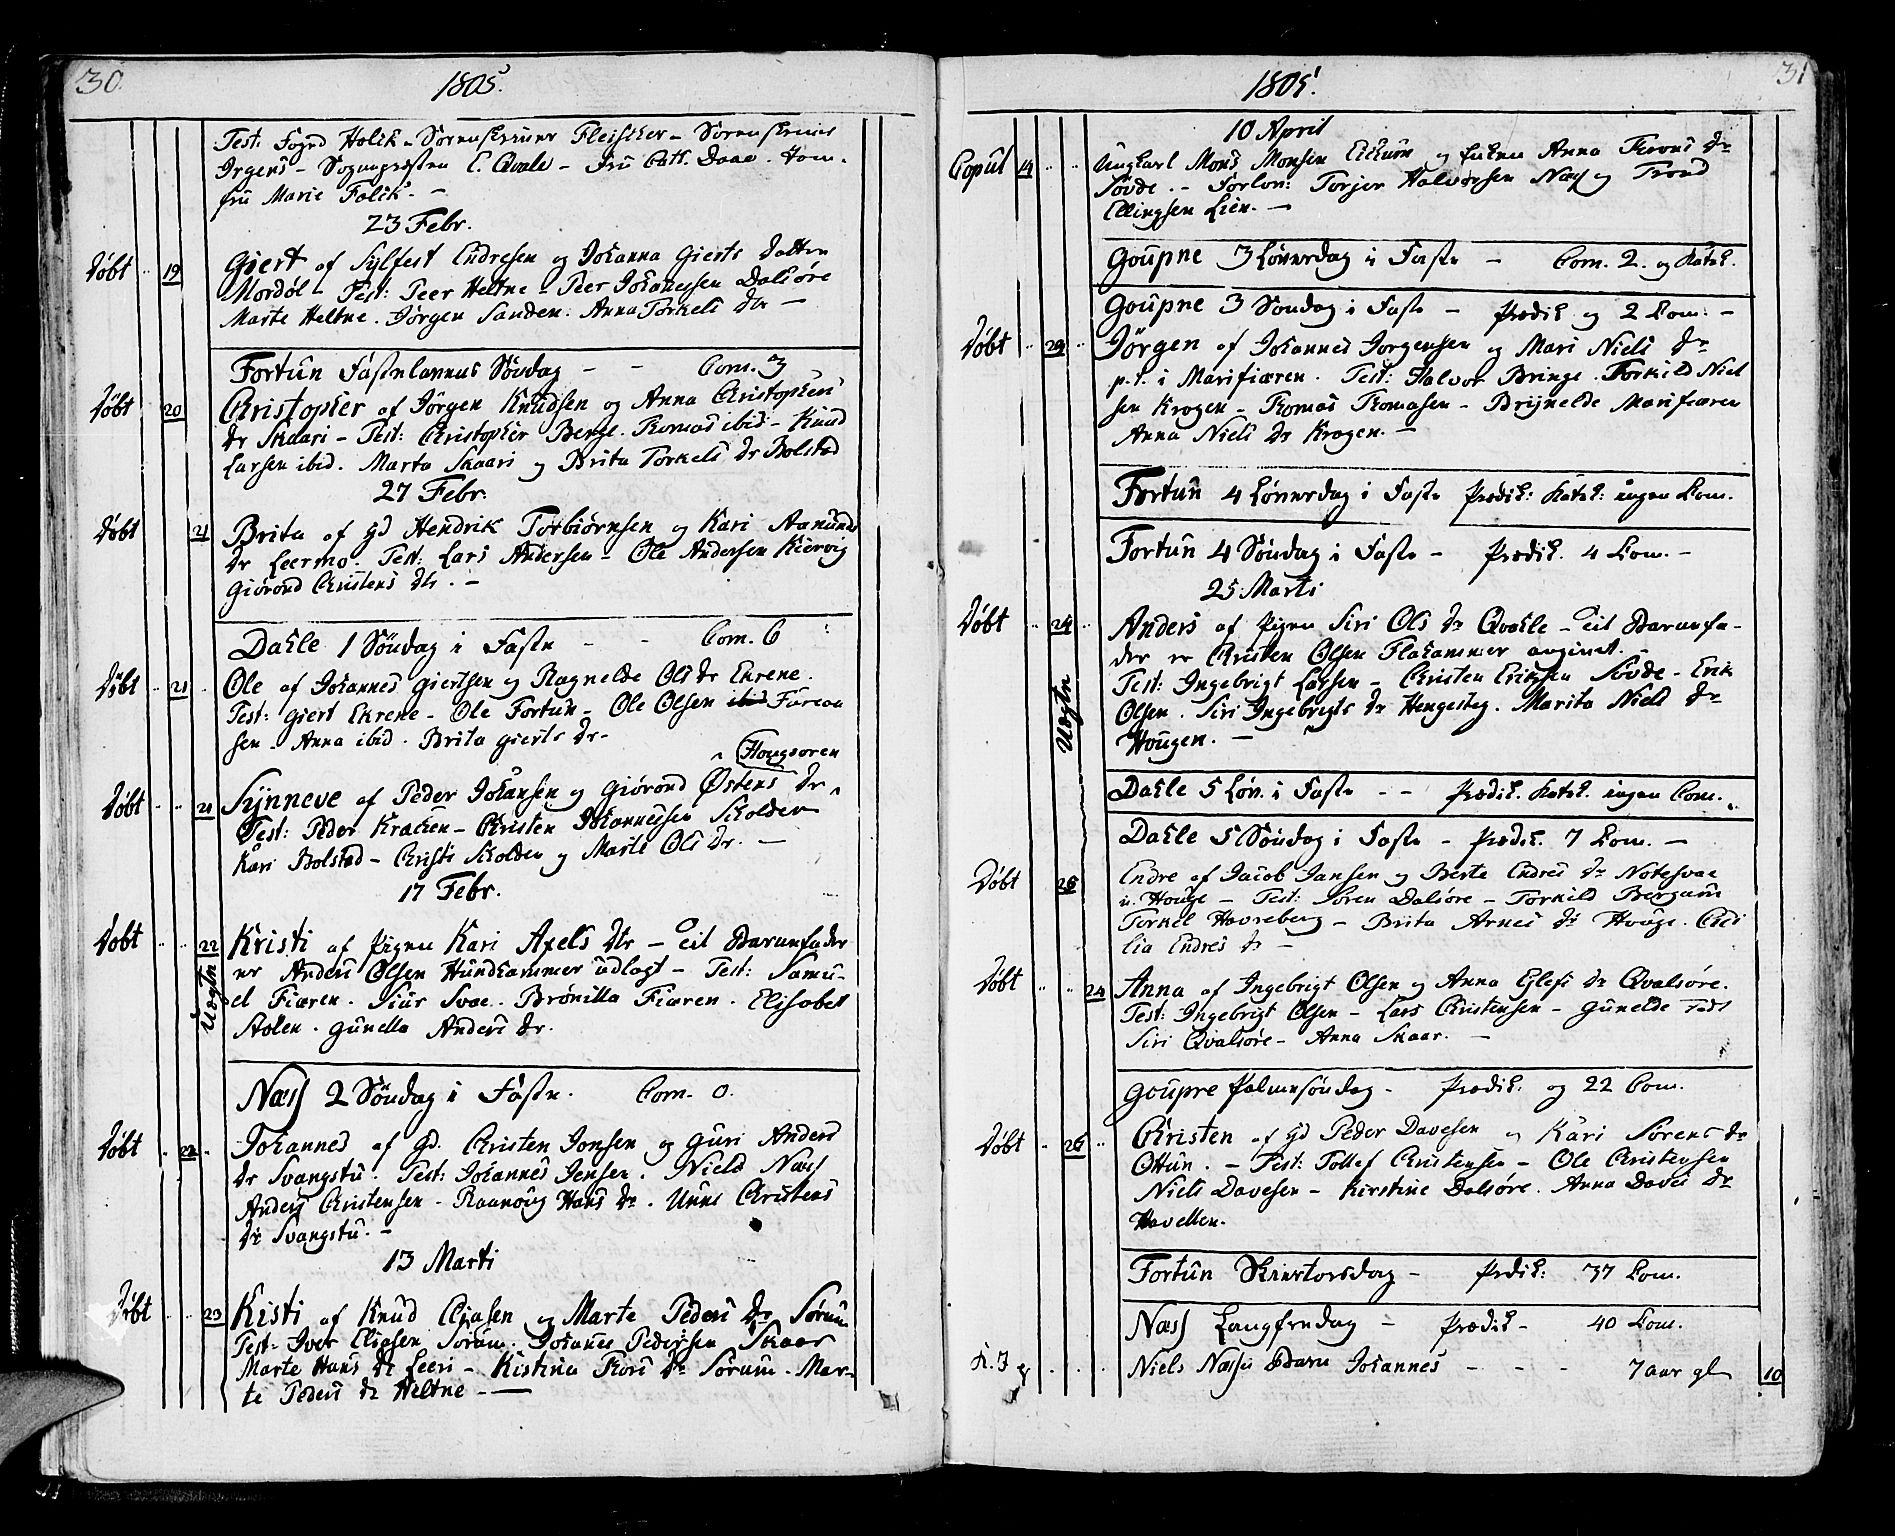 30.
1805.
Test: Fogd Holck - Sorenskriver Fleischer - Sorenskriver
Irgens - Sognepresten C. Qvale - Fru Cath. Daae. Jom-
fru Marie Falck. -
23 Febr.
Døbt 19 Giert af Sylfest Endresen og Johanna Gierts Datter
Mordøl - Test: Peer Heltne - Peer Johannessen Dalsøre
Marte Heltne. Jørgen Sanden. Anna Torkels dr -
Fortun Fastelavns Søndag - - Com. 3
Døbt 20 Christopher af Jørgen Knudsen og Anna Christophers
dr Skaari - Test: Christopher Berge. Thomas ibid - Knud
Larsen ibid. Marta Skaari og Brita Torkels dr Bolstad
27 Febr.
Døbt 21 Brita af gd Hendrik Torbiørnsen og Kari Aamunds
dr Leermo. Test. Lars Andersen - Ole Andersen Kiervig
Giørond Christens dr. -
Dahle 1 Søndag i Faste - - Com. 6
Døbt 21 Ole af Johannes Giertsen og Ragnelde Ols dr Ekrene.
Test: Giert Ekrene - Ole Fortun - Ole Olsen ibid Furaa
sen - Anna ibid. Brita Gierts dr -
Haugsøren
Døbt 21 Synneve af Peder Johansen og Giørond Østens dr
Test: Peder Kraken - Christen Johannessen Skolden
Kari Bolstad - Christi Skolden og Marte Ols dr. -
17 Febr.
Døbt 22 Uægtn Kristi af Pigen Kari Axels dtr - til Barnefader
er Anders Olsen Hundhammer udlagt - Test: Samu-
el Fiæren. Siur Svae. Brønilla Fiæren. Elisabet
Aasen. Gunella Anders dr.
Næss 2 Søndag i Faste. Com. 0.
Døbt 22 Johannes af gd. Christen Jonsen og Guri Anders
dr Svangstu. Test: Johannes Jensen. Niels Næss
Anders Christensen - Raanøug Hans dr. Unni Christens
dr Svangstu. -
13 Marti
Døbt 23 Kisti af Knud Eliasen og Marte Peders dr Sørum
Test: Iver Eliasen Sorum. Johanes Pedersen Skaar
Marte Hans dr Leeri - Kistina Thors dr Sørum - Mar-
te Peders dr Heltne -
31
1805.
10 April
Copul 14 Ungkarl Mons Monsen Eikum og Enken Anna Throns dr
Søvde. - Forlov: Torjer Halvorsen Næs og Trond
Ellingsen Lien. -
Goupne 3 Løverdag i Faste - Com. 2. og Katek.
Goupne 3 Søndag i Faste - Prædik og 2 Com: -
Døbt 23 Jørgen af Johannes Jorgensen og Mari Niels dr
p.t. i Marifiæren. Test: Halvor Bringe. Torkild Niel
sen Krogen - Thomas Thomasen - Brijnelde Marifiæren
Anna Niels dr Krogen. -
Fortun 4 Løverdag i Faste Prædik: Katek: ingen Com.
Fortun 4 Søndag i Faste - Prædik. 4 Com. -
25 Marti
Døbt 24 Uægtn Anders af Pigen Siri Ols dr Qvahle - til Barnefa-
der er Christen Olsen Flahammer angivet. -
Test: Ingebrigt Larsen - Christen Eriksen Søvde - Erik
Olsen. Siri Ingebrigts dr Hengesteg. Marita Niels dr
Hougen. -
Dahle 5 Løv. i Faste - - Prædik. Katek. ingen Com.
Dahle 5 Søndag i Faste - Prædik. 7 Com. -
Døbt 25 Endre af Jacob Jansen og Berte Endres dr Notesvae
u. Houge - Test: Søren Dalsøre - Torkild Bergum
Torkel Havreberg - Brita Arnes dr Houge. Cici
lia Endres dr -
Døbt 24 Anna af Ingebrigt Olsen og Anna Eglefs dr Qvalsøre.
Test: Ingebrigt Olsen - Lars Christensen - Gunelde
Siri Qvalsøre - Anna Skaar. -
Goupne Palmesøndag - Prædik: og 22 Com.
Døbt 26 Christen af gd Peder Davesen og Kari Sørens dr
Ottun. - Test: Tollef Christensen - Ole Christensen
Niels Davesen - Kirstine Dalsøre. Anna Daves dr
Havellen.
Fortun Skiertorsdag - Prædik: 37 Com.
Næss Langfredag - Prædik - 40 Com.
Niels Næsses Barn Johannes - - - 7 aar gl 10